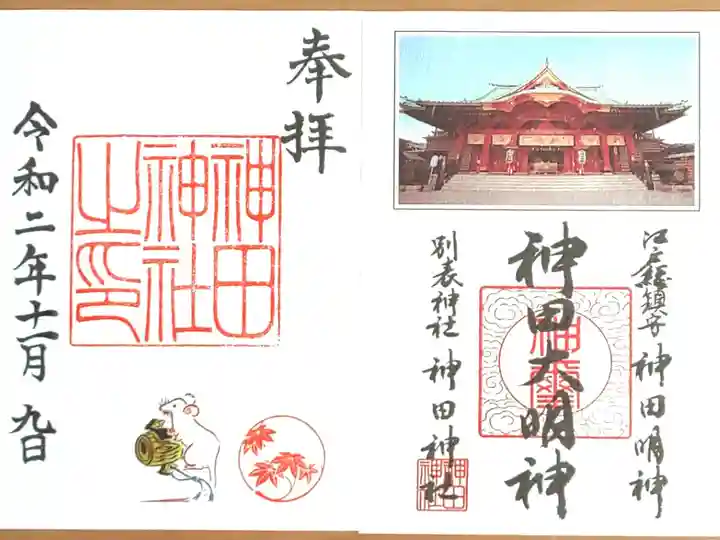 奉拝
神田
神社
之印
令和二年十一月九日
江戸総鎮守 神田明神
神田大明神
別表神社 神田神社
神田
神社